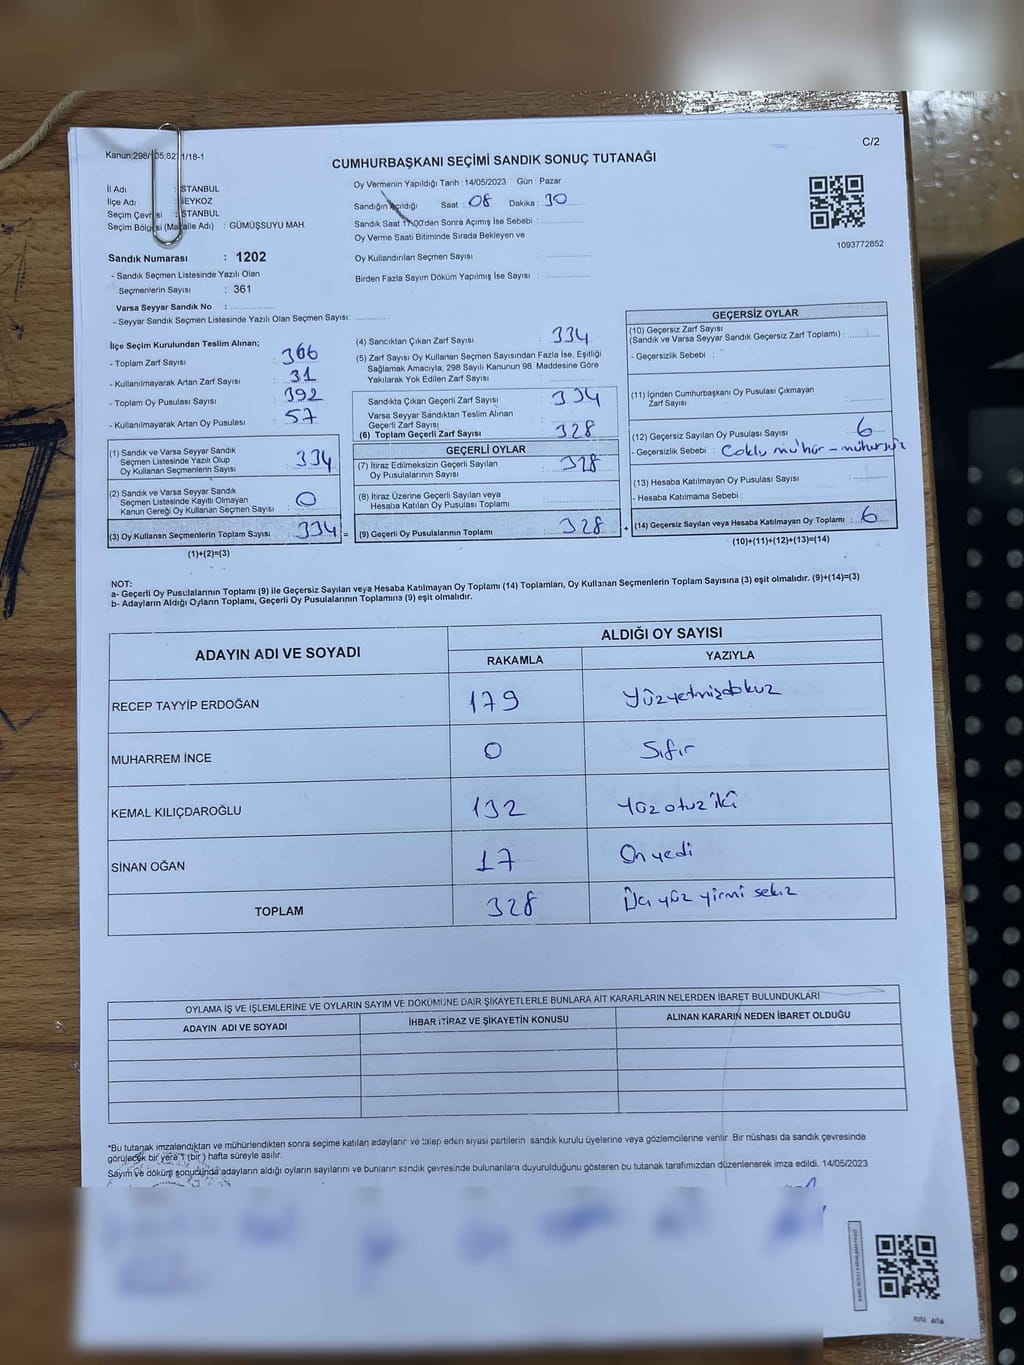 C/2
CUMHURBAŞKANI SEÇİMİ SANDIK SONUÇ TUTANAĞI
İl Adı : İSTANBUL
İlçe Adı : BEYKOZ
Seçim Çevresi : İSTANBUL
Seçim Bölgesi (Mahalle Adı) : GÜMÜŞSUYU MAH.
Sandık Numarası : 1202
- Sandık Seçmen Listesinde Yazılı Olan
Seçmenlerin Sayısı : 361
Varsa Seyyar Sandık No :
- Seyyar Sandık Seçmen Listesinde Yazılı Olan Seçmen Sayısı:
Oy Vermenin Yapıldığı Tarih : 14/05/2023 Gün : Pazar
Sandığın Açıldığı Saat : 08 Dakika : 30
Sandık Saat 17:00'den Sonra Açımış İse Sebebi :
Oy Verme Saati Bitiminde Sırada Bekleyen ve
Oy Kullandırılan Seçmen Sayısı :
Birden Fazla Sayım Döküm Yapılmış İse Sayısı :
1093772852
İlçe Seçim Kurulundan Teslim Alınan;
- Toplam Zarf Sayısı : 366
- Kullanılmayarak Artan Zarf Sayısı : 31
- Toplam Oy Pusulası Sayısı : 392
- Kullanılmayarak Artan Oy Pusulası : 57
(1) Sandık ve Varsa Seyyar Sandık
Seçmen Listesinde Yazılı Olup
Oy Kullanan Seçmenlerin Sayısı : 334
(2) Sandık ve Varsa Seyyar Sandık
Seçmen Listesinde Kayıtlı Olmayan
Kanun Gereği Oy Kullanan Seçmen Sayısı : 0
(3) Oy Kullanan Seçmenlerin Toplam Sayısı : 334 =
(1)+(2)=(3)
(4) Sandıktan Çıkan Zarf Sayısı : 334
(5) Zarf Sayısı Oy Kullanan Seçmen Sayısından Fazla İse, Eşitliği
Sağlamak Amacıyla; 298 Sayılı Kanunun 98. Maddesine Göre
Yakılarak Yok Edilen Zarf Sayısı :
Sandıkta Çıkan Geçerli Zarf Sayısı : 334
Varsa Seyyar Sandıktan Teslim Alınan
Geçerli Zarf Sayısı :
(6) Toplam Geçerli Zarf Sayısı : 328
GEÇERLİ OYLAR
(7) İtiraz Edilmeksizin Geçerli Sayılan
Oy Pusulasının Sayısı : 328
(8) İtiraz Üzerine Geçerli Sayılan veya
Hesaba Katılan Oy Pusulası Toplamı :
(9) Geçerli Oy Pusulalarının Toplamı : 328 +
GEÇERSİZ OYLAR
(10) Geçersiz Zarf Sayısı
(Sandık ve Varsa Seyyar Sandık Geçersiz Zarf Toplamı) :
- Geçersizlik Sebebi :
(11) İçinden Cumhurbaşkanı Oy Pusulası Çıkmayan
Zarf Sayısı :
(12) Geçersiz Sayılan Oy Pusulası Sayısı : 6
- Geçersizlik Sebebi : Çoklu mühür - mühürsüz
(13) Hesaba Katılmayan Oy Pusulası Sayısı :
- Hesaba Katılmama Sebebi :
(14) Geçersiz Sayılan veya Hesaba Katılmayan Oy Toplamı : 6
(10)+(11)+(12)+(13)=(14)
NOT:
a- Geçerli Oy Pusulalarının Toplamı (9) ile Geçersiz Sayılan veya Hesaba Katılmayan Oy Toplamı (14) Toplamları, Oy Kullanan Seçmenlerin Toplam Sayısına (3) eşit olmalıdır. (9)+(14)=(3)
b- Adayların Aldığı Oyların Toplamı, Geçerli Oy Pusulalarının Toplamına (9) eşit olmalıdır.
ADAYIN ADI VE SOYADI
ALDIĞI OY SAYISI
RAKAMLA YAZIYLA
RECEP TAYYİP ERDOĞAN 179 Yüzyetmişdokuz
MUHARREM İNCE 0 Sıfır
KEMAL KILIÇDAROĞLU 132 Yüz otuz iki
SİNAN OĞAN 17 On yedi
TOPLAM 328 yüz yirmi sekiz
OYLAMA İŞ VE İŞLEMLERİNE VE OYLARIN SAYIM VE DÖKÜMÜNE DAİR ŞİKAYETLERLE BUNLARA AİT KARARLARIN NELERDEN İBARET BULUNDUKLARI
ADAYIN ADI VE SOYADI İHBAR İTİRAZ VE ŞİKAYETİN KONUSU ALINAN KARARIN NEDEN İBARET OLDUĞU
*Bu tutanak imzalandıktan ve mühürlendikten sonra seçime katılan adayların ve talep eden siyasi partilerin sandık kurulu üyelerine veya gözlemcilerine verilir. Bir nüshası da sandık çevresinde
görülecek bir yere 1 (bir) hafta süreyle asılır.
Sayım ve döküm sonucunda adayların aldığı oyların sayılarını ve bunların sandık çevresinde bulunanlara duyurulduğunu gösteren bu tutanak tarafımızdan düzenlenerek imza edildi. 14/05/2023